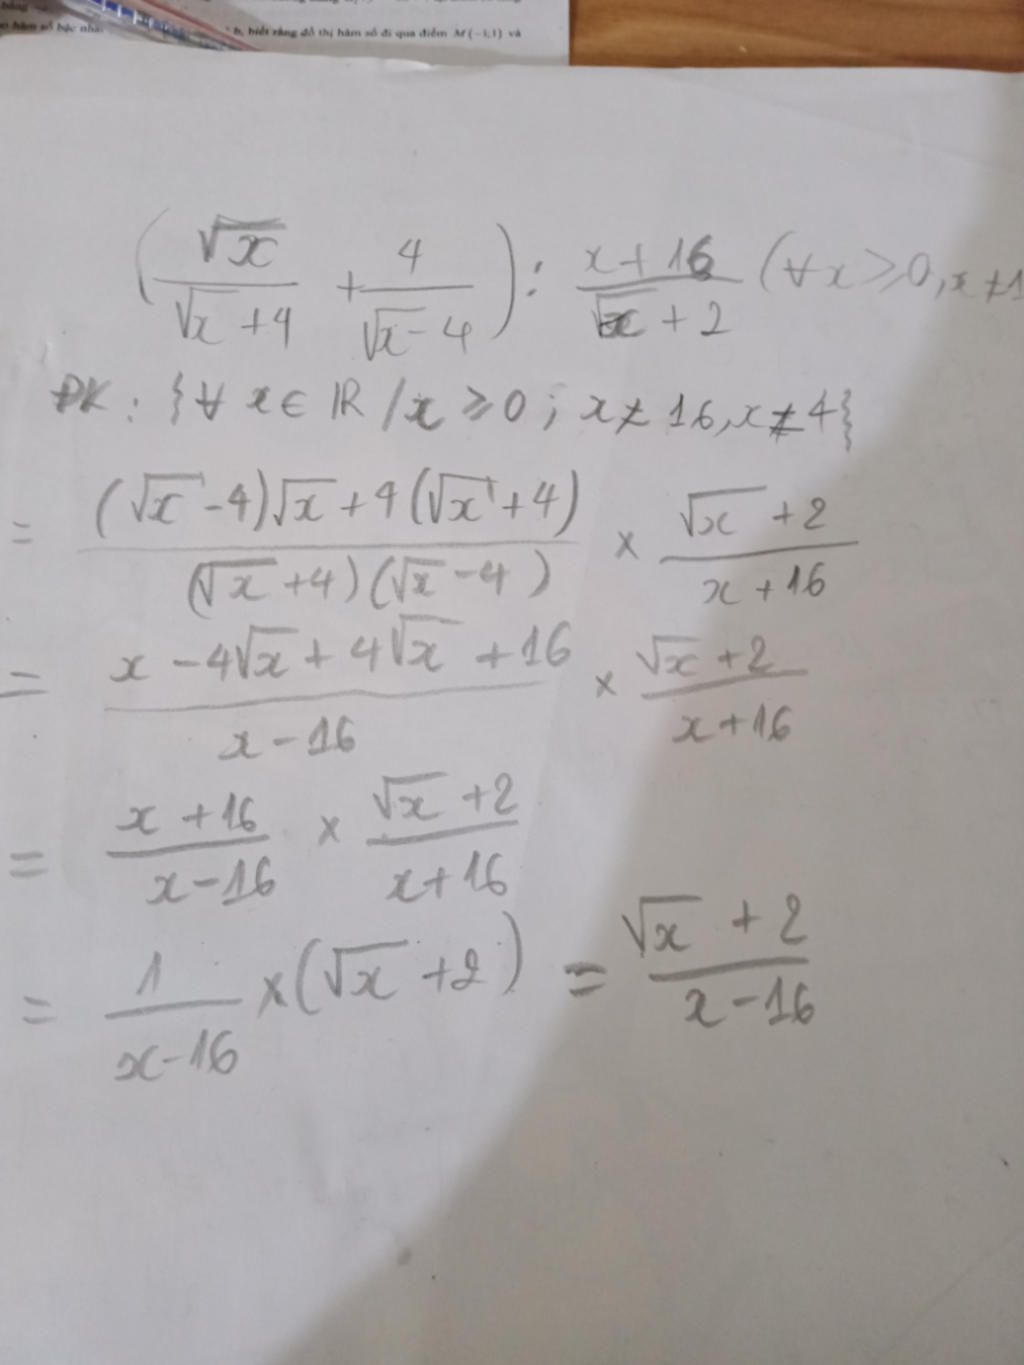 b, biết rằng đồ thị hàm số đi qua điểm M(-1;1) và
(√x/(√x+4) + 4/(√x-4)) : (x+16)/(√x+2) (∀x≥0, x≠1
ĐK: {∀ x ∈ ℝ / x ≥ 0; x ≠ 16, x ≠ 4}
= ((√x-4)√x+4(√x+4))/((√x+4)(√x-4)) × (√x+2)/(x+16)
= (x-4√x+4√x+16)/(x-16) × (√x+2)/(x+16)
= (x+16)/(x-16) × (√x+2)/(x+16)
= 1/(x-16) × (√x+2) = (√x+2)/(x-16)